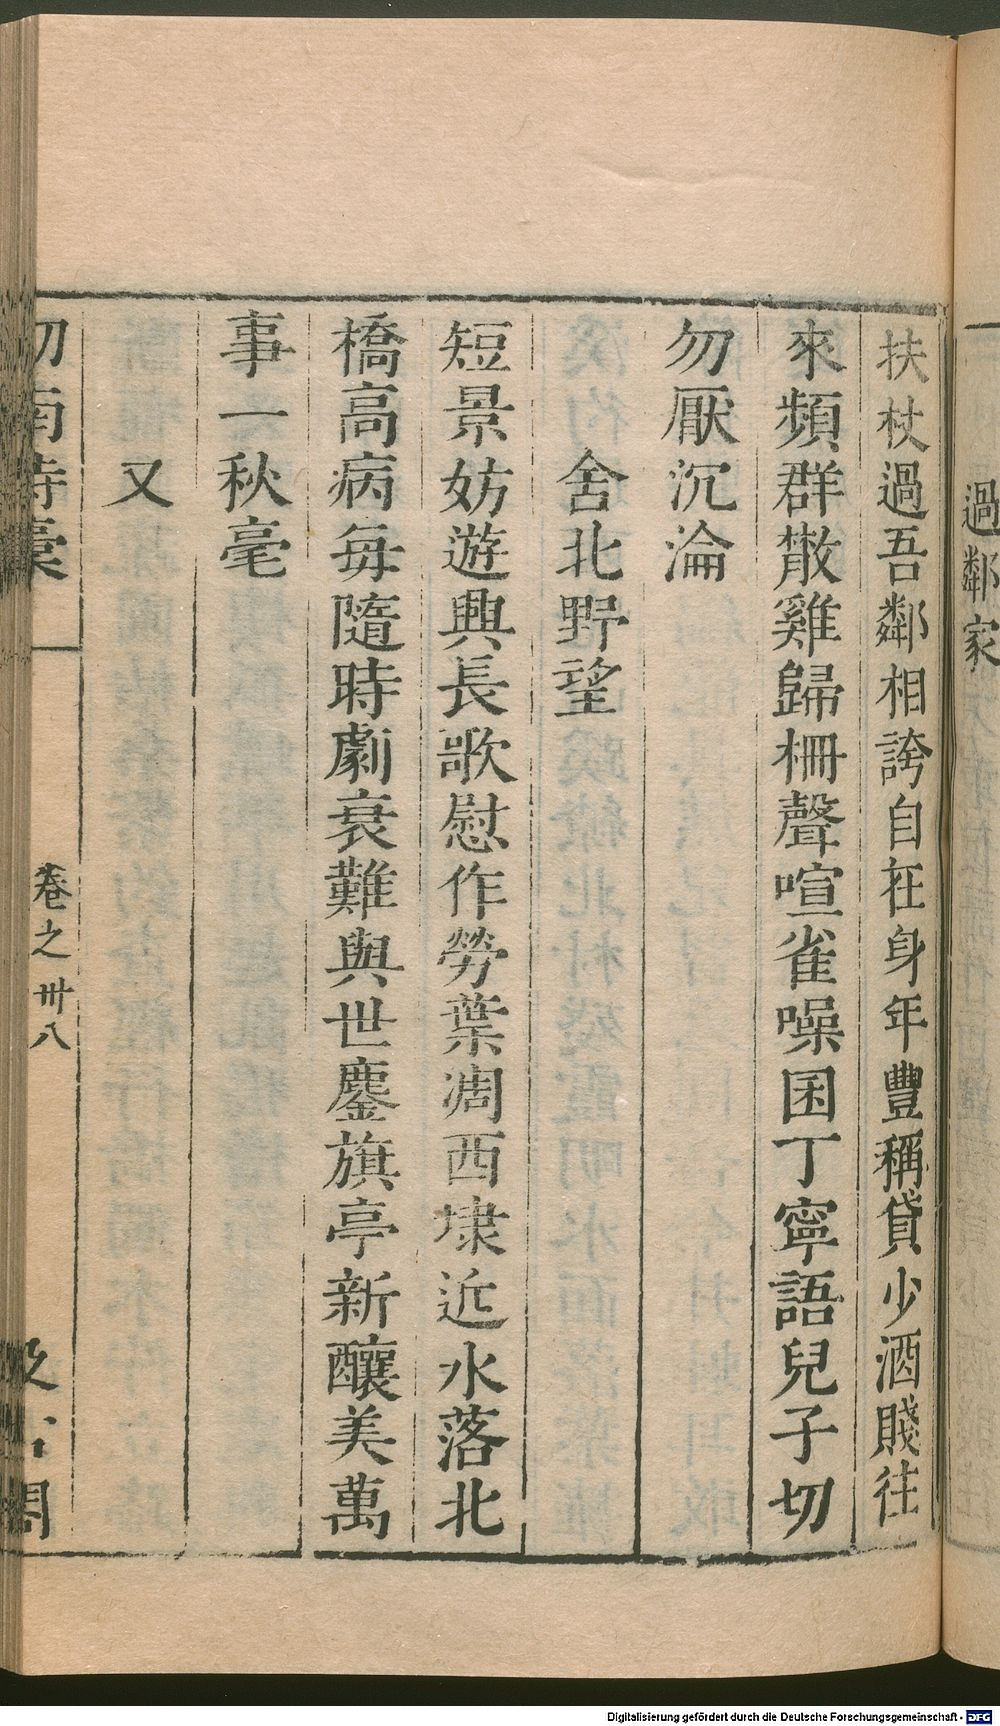 過鄰家
扶杖過吾鄰相誇自在身年豐稱貸少酒賤往
來頻群散雞歸柵聲喧雀噪囷丁寧語兒子切
勿厭沉淪
舍北野望
短景妨遊興長歌慰作勞葉凋西埭近水落北
橋高病每隨時劇衰難與世鏖旗亭新釀美萬
事一秋毫
又
卷之 卅八
Digitalisierung gefördert durch die Deutsche Forschungsgemeinschaft - DFG